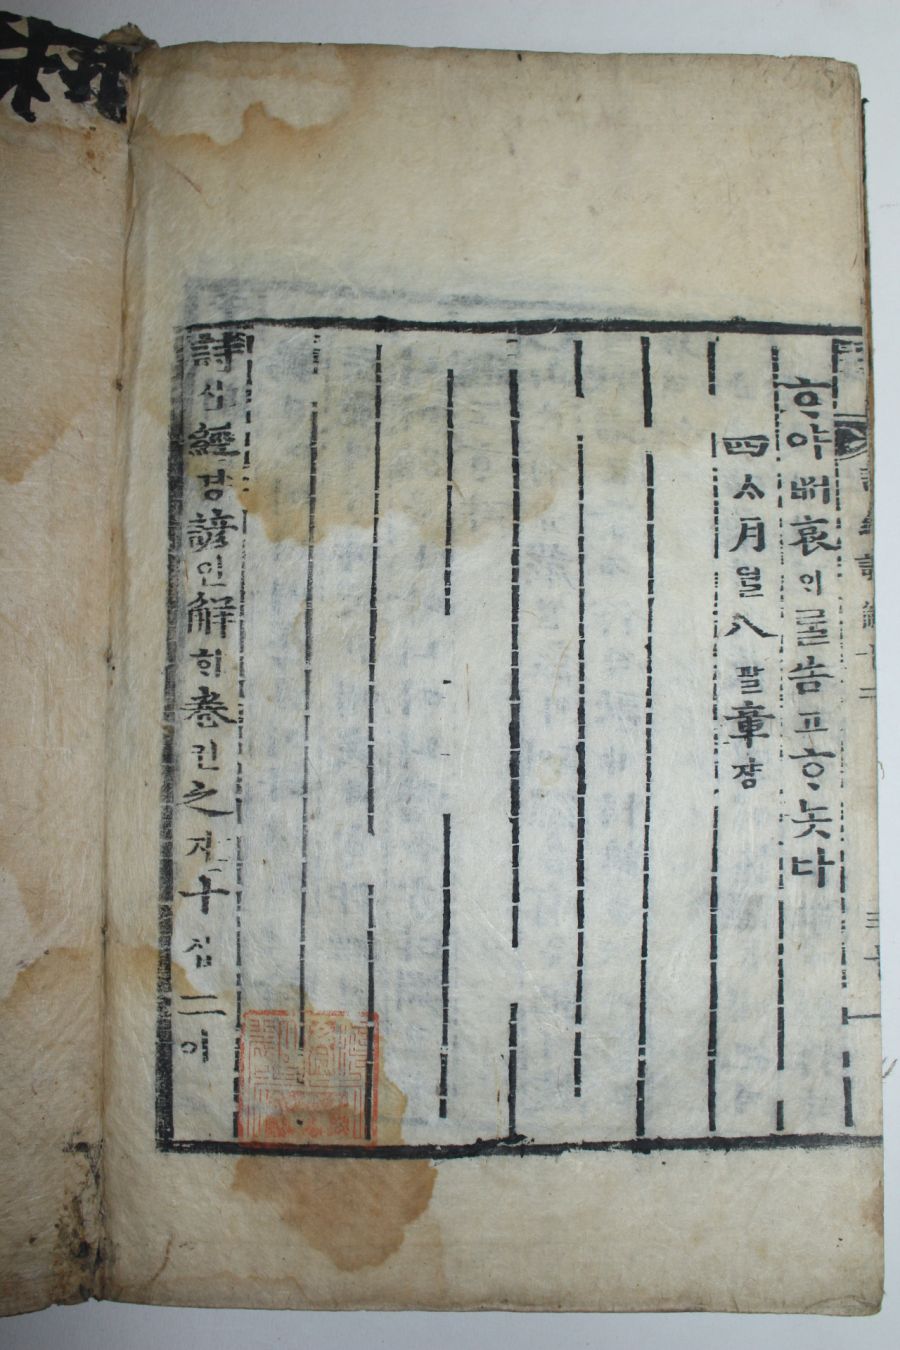 ᄒᆞ야ᄡᅥ哀의를告고ᄒᆞ놋다
四ᄉᆞ月월八팔章쟝
詩시經경諺언解ᄒᆡ卷권之지十십二이